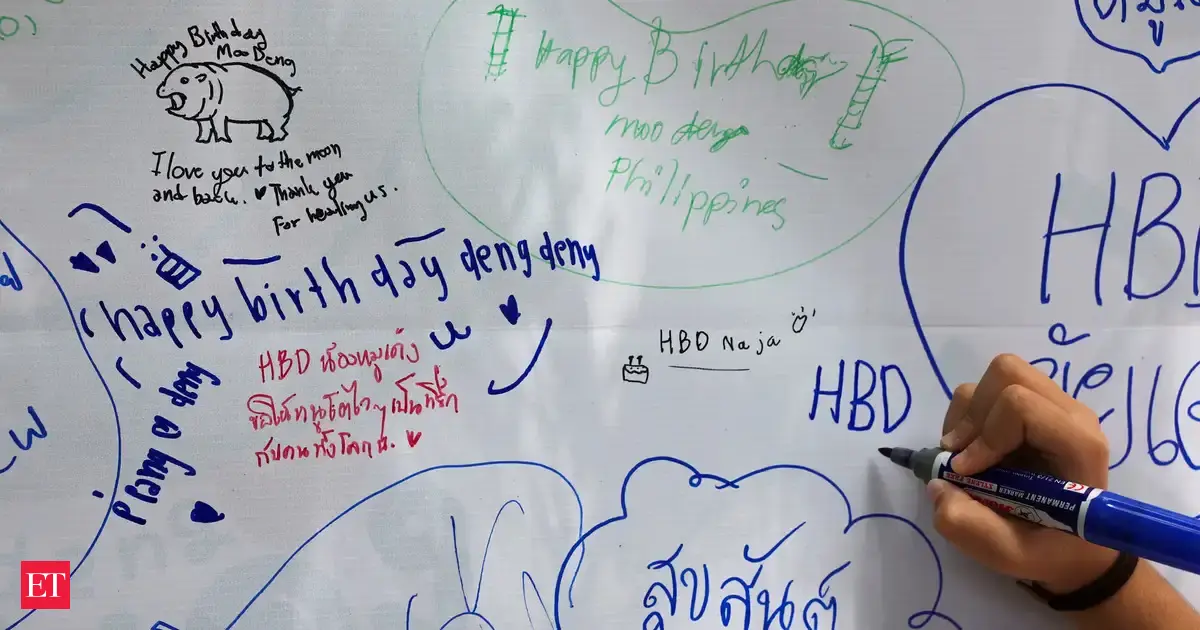 Happy Birthday
Moo Deng
I love you to the moon
and back. ♥ Thank you
For healing us.
Happy Birthday
moo deng
Philippines
happy birthday deng deng
HBD น้องหมูเด้ง
ขอให้หนูโตไวๆ เป็นที่รัก
กับคนทั้งโลกนี้. ♥
HBD Naja
HBD
HBD
สุขสันต์
PERMANENT MARKER
ET